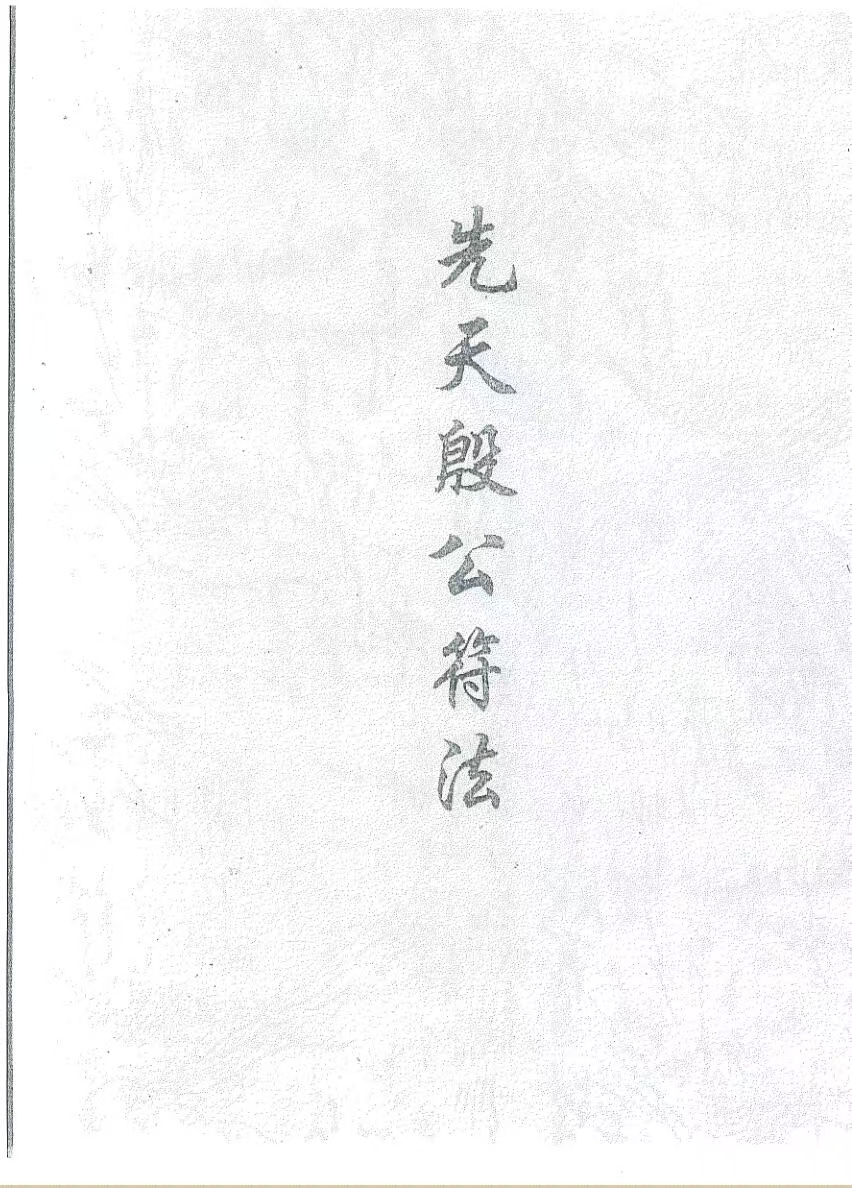 先天殷公符法